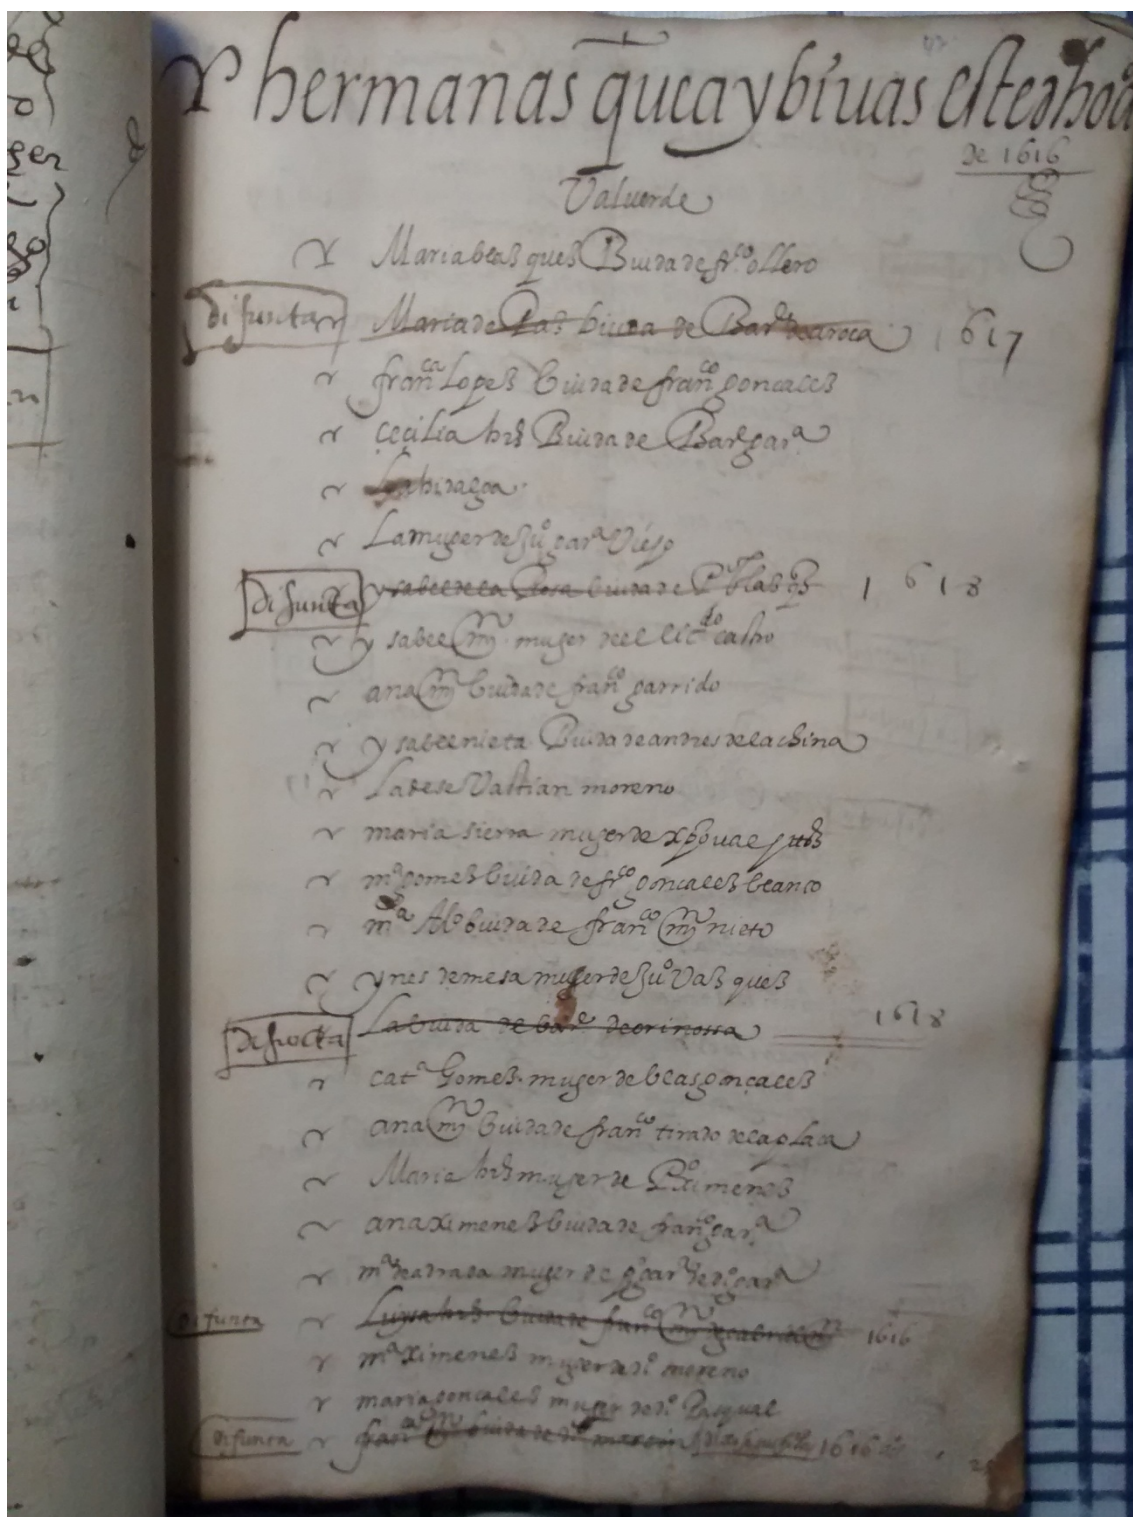 Y hermanas q̄ ea y biuas este año
de 1616
Valuerde
Y Maria blasques Biuda de frco ollero
difunta Maria de Pas biuda de Barme de aroca 1617
franca Lopes biuda de franco goncales
cecilia hrs Biuda de Barme gara
La hidalgoa
La muger de Juo gara Viejo
Difunta ysabel de la Rosa biuda de Po blasqs 1618
ysabel mrn muger del licdo castro
ana mrn biuda de franco garrido
ysabel nieta Biuda de andres de la china
La de seVastian moreno
maria sierra muger de xpoual
ma gomes biuda de frco goncales blanco
ma Alo biuda de franco mrn nieto
ynes de mesa muger de Juo Vasques
difucta La biuda de bare de orinossa 1618
cata Gomes muger de blas goncales
ana mrn biuda de franco tirado de la placa
Maria hrs muger de Po ximenes
ana ximenes biuda de franco gara
ma de adrada muger de po gara de do gara
difunta Luysa hrs biuda de franco mrn de gabriel mrn 1616
ma ximenes muger de do moreno
maria goncales muger de do Pasqual
difunta franca mrn biuda de do martin 1616